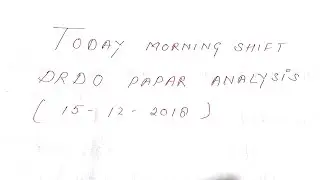 TODAY MORNING SHIFT
DRDO PAPAR ANALYSIS
( 15-12-2018 )